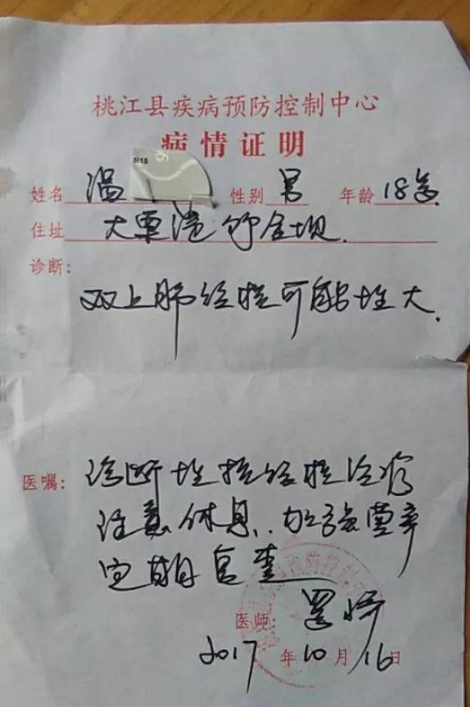 桃江县疾病预防控制中心
病情证明
姓名 温 性别 男 年龄 18岁
住址 大栗港竹金坝.
诊断:
双上肺结核可能性大.
医嘱: 诊断性抗结核治疗
注意休息. 加强营养
定期复查
医师:
2017年10月16日